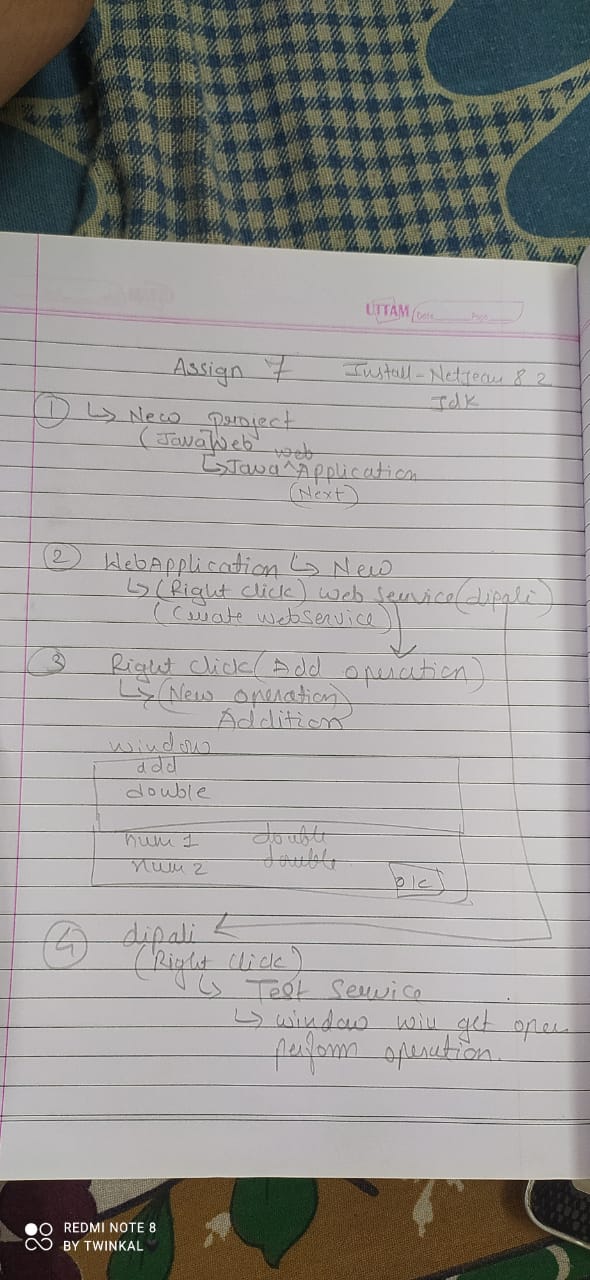 UTTAM
Date Page
Assign 7 Install - Netbean 8 2
Jdk
① ↳ New project
(JavaWeb
↳ Java web Application
(Next)
② WebApplication ↳ New
↳ (Right click) web service (dipali)
(Create webservice)
③ Right click (Add operation)
↳ (New operation)
Addition
window
add
double
num 1 double
num 2 double
ok
④ dipali
(Right click)
↳ Test Service
↳ window will get open
perform operation.
REDMI NOTE 8
BY TWINKAL